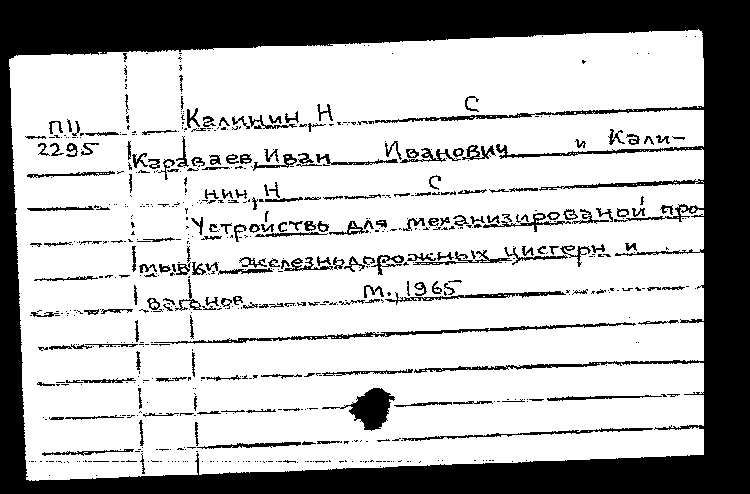 Калинин, Н С
ПЦ
2295
Караваев, Иван Иванович и Кали-
нин, Н С
Устройство для механизированой про
мывки железнодорожных цистерн и
вагонов М., 1965